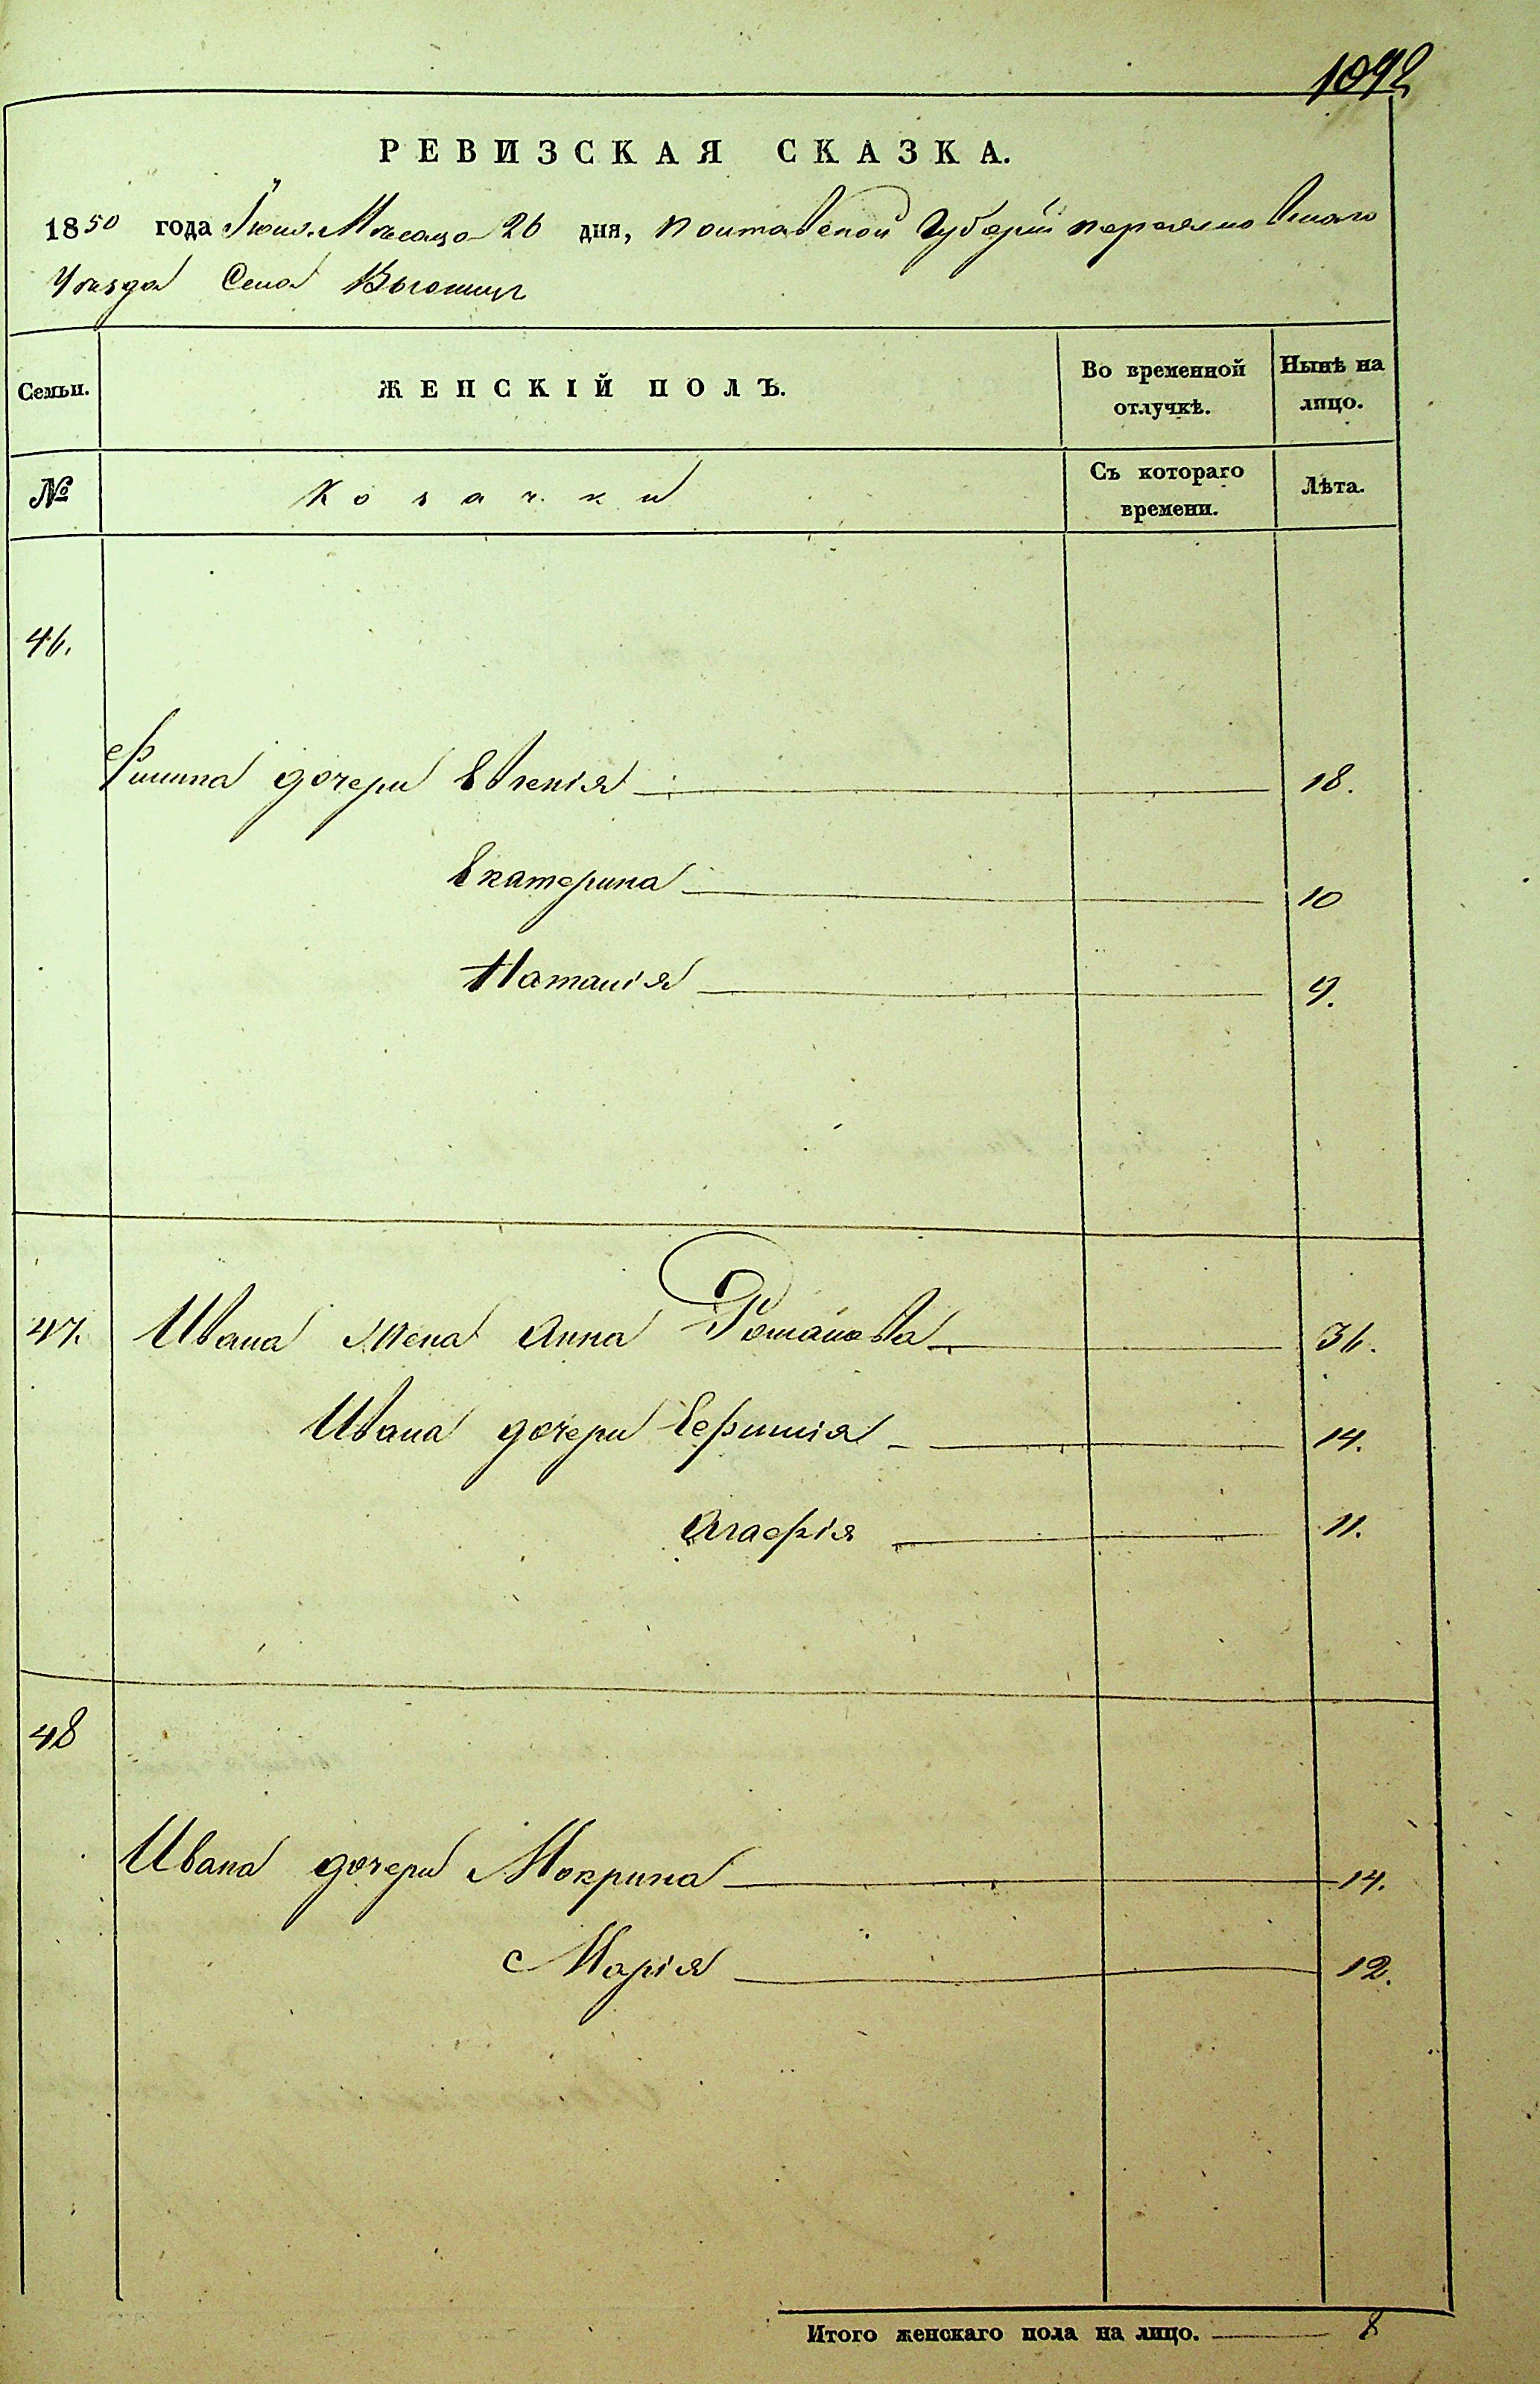 1092
РЕВИЗСКАЯ СКАЗКА.
1850 года Іюня Мѣсяца 26 дня, Полтавской Губерніи Переяславскаго
Уѣзда Села
Семьи. ЖЕНСКІЙ ПОЛЪ. Во временной отлучкѣ. Нынѣ на лицо.
№ Козачки Съ котораго времени. Лѣта.
46.
Филипа дочери Евгенія 18.
Екатерина 10
Наталія 9.
47. Ивана жена Анна Романова 36.
Ивана дочери Ефимія 14.
Агафія 11.
48
Ивана дочери Мокрина 14.
Марія 12.
Итого женскаго пола на лицо. 8